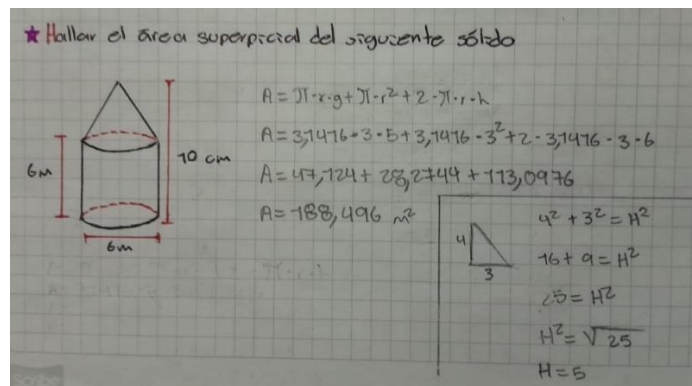 ★ Hallar el área superficial del siguiente sólido
A = π·r·g + π·r² + 2·π·r·h
A = 3,1416·3·5 + 3,1416·3² + 2·3,1416·3·6
A = 47,124 + 28,2744 + 113,0976
A = 188,496 m²
6m
10 cm
6m
4
3
4² + 3² = H²
16 + 9 = H²
25 = H²
H² = √25
H = 5